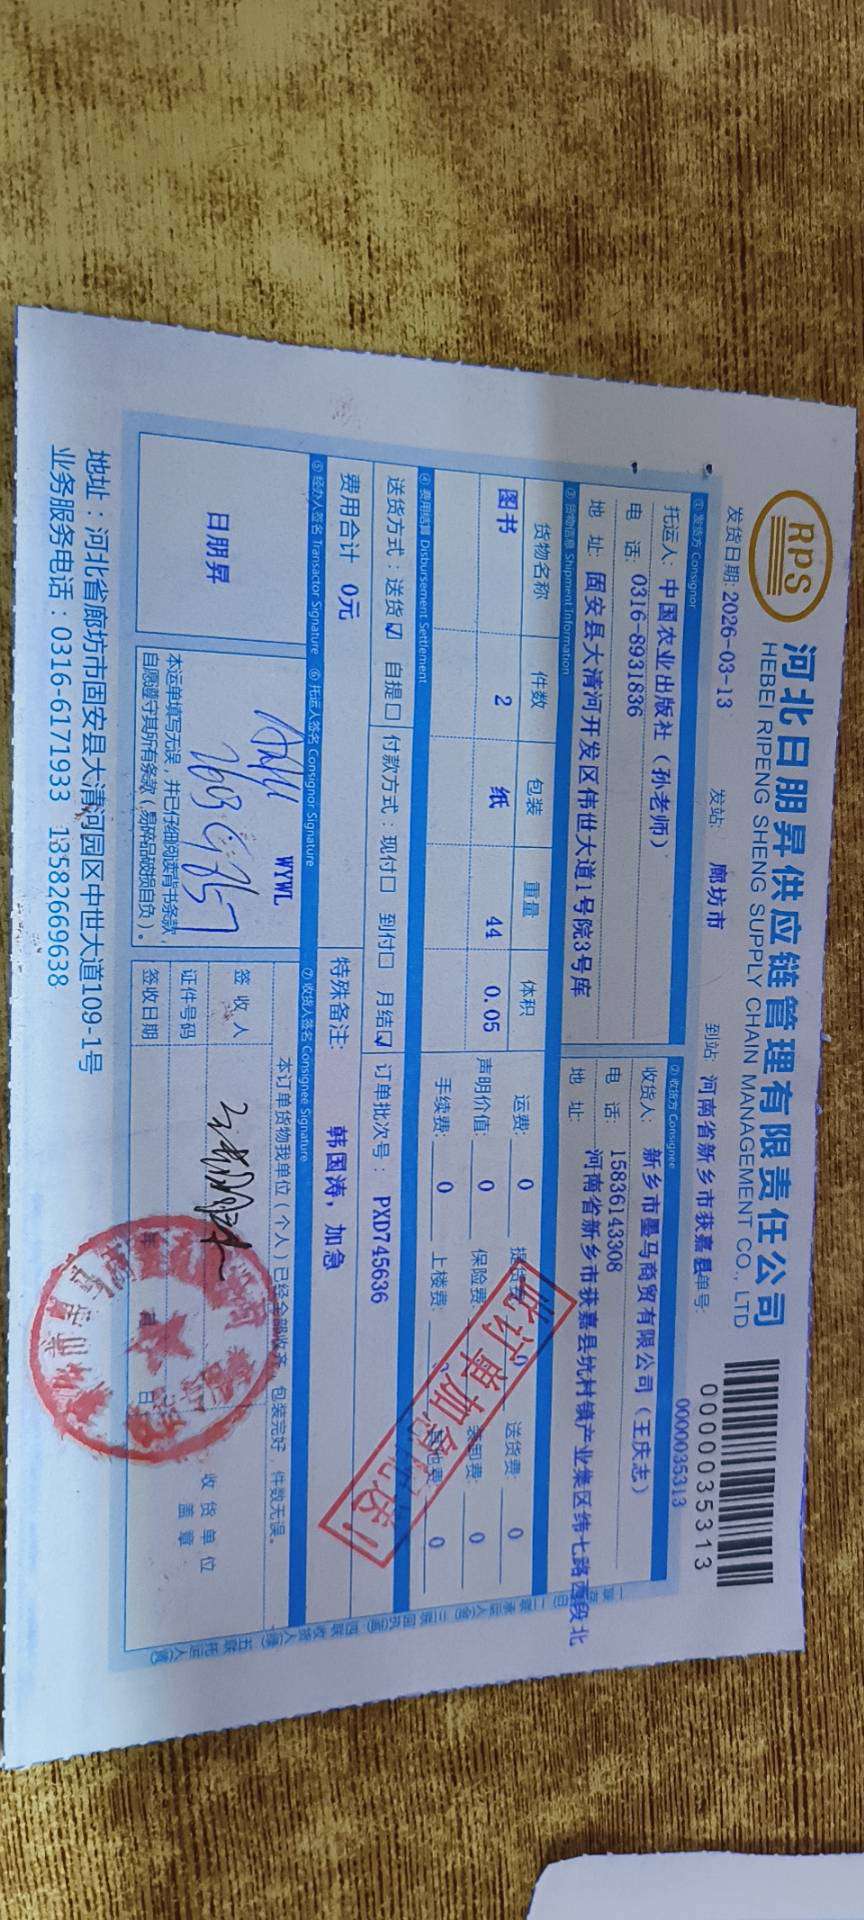 RPS
河北日朋昇供应链管理有限责任公司
HEBEI RIPENG SHENG SUPPLY CHAIN MANAGEMENT CO., LTD
0000035313
发货日期: 2026-03-13 发站: 廊坊市 到站: 河南省新乡市获嘉县 单号: 0000035313
① 发货方 Consignor ② 收货方 Consignee
托运人: 中国农业出版社(孙老师) 收货人: 新乡市墨马商贸有限公司(王庆志)
电 话: 0316-8931836 电 话: 15836143308
地 址: 固安县大清河开发区伟世大道1号院3号库 地 址: 河南省新乡市获嘉县亢村镇产业集区纬七路西段北
③ 货物信息 Shipment Information
货物名称 件数 包装 重量 体积 运费: 0 提货费: 0 送货费: 0
图书 2 纸 44 0.05 声明价值: 0 保险费: 装卸费: 0
手续费: 0 上楼费: 其他费: 0
④ 费用结算 Disbursement Settlement
送货方式: 送货☑ 自提□ 付款方式: 现付□ 到付□ 月结☑ 订单批次号: PXD745636
费用合计 0元 特殊备注: 韩国涛, 加急
此订单加急
⑤ 经办人签名 Transactor Signature ⑥ 托运人签名 Consignor Signature ⑦ 收货人签名 Consignee Signature
日朋昇
WYWL
本运单填写无误,并已仔细阅读背书条款,
自愿遵守其所有条款(易碎品破损自负)。
本订单货物我单位(个人)已经全部收齐,包装完好,件数无误。
签 收 人
证件号码
签收日期 年 月 日
收货单位
盖章
地址:河北省廊坊市固安县大清河园区中世大道109-1号
业务服务电话:0316-6171933 13582669638